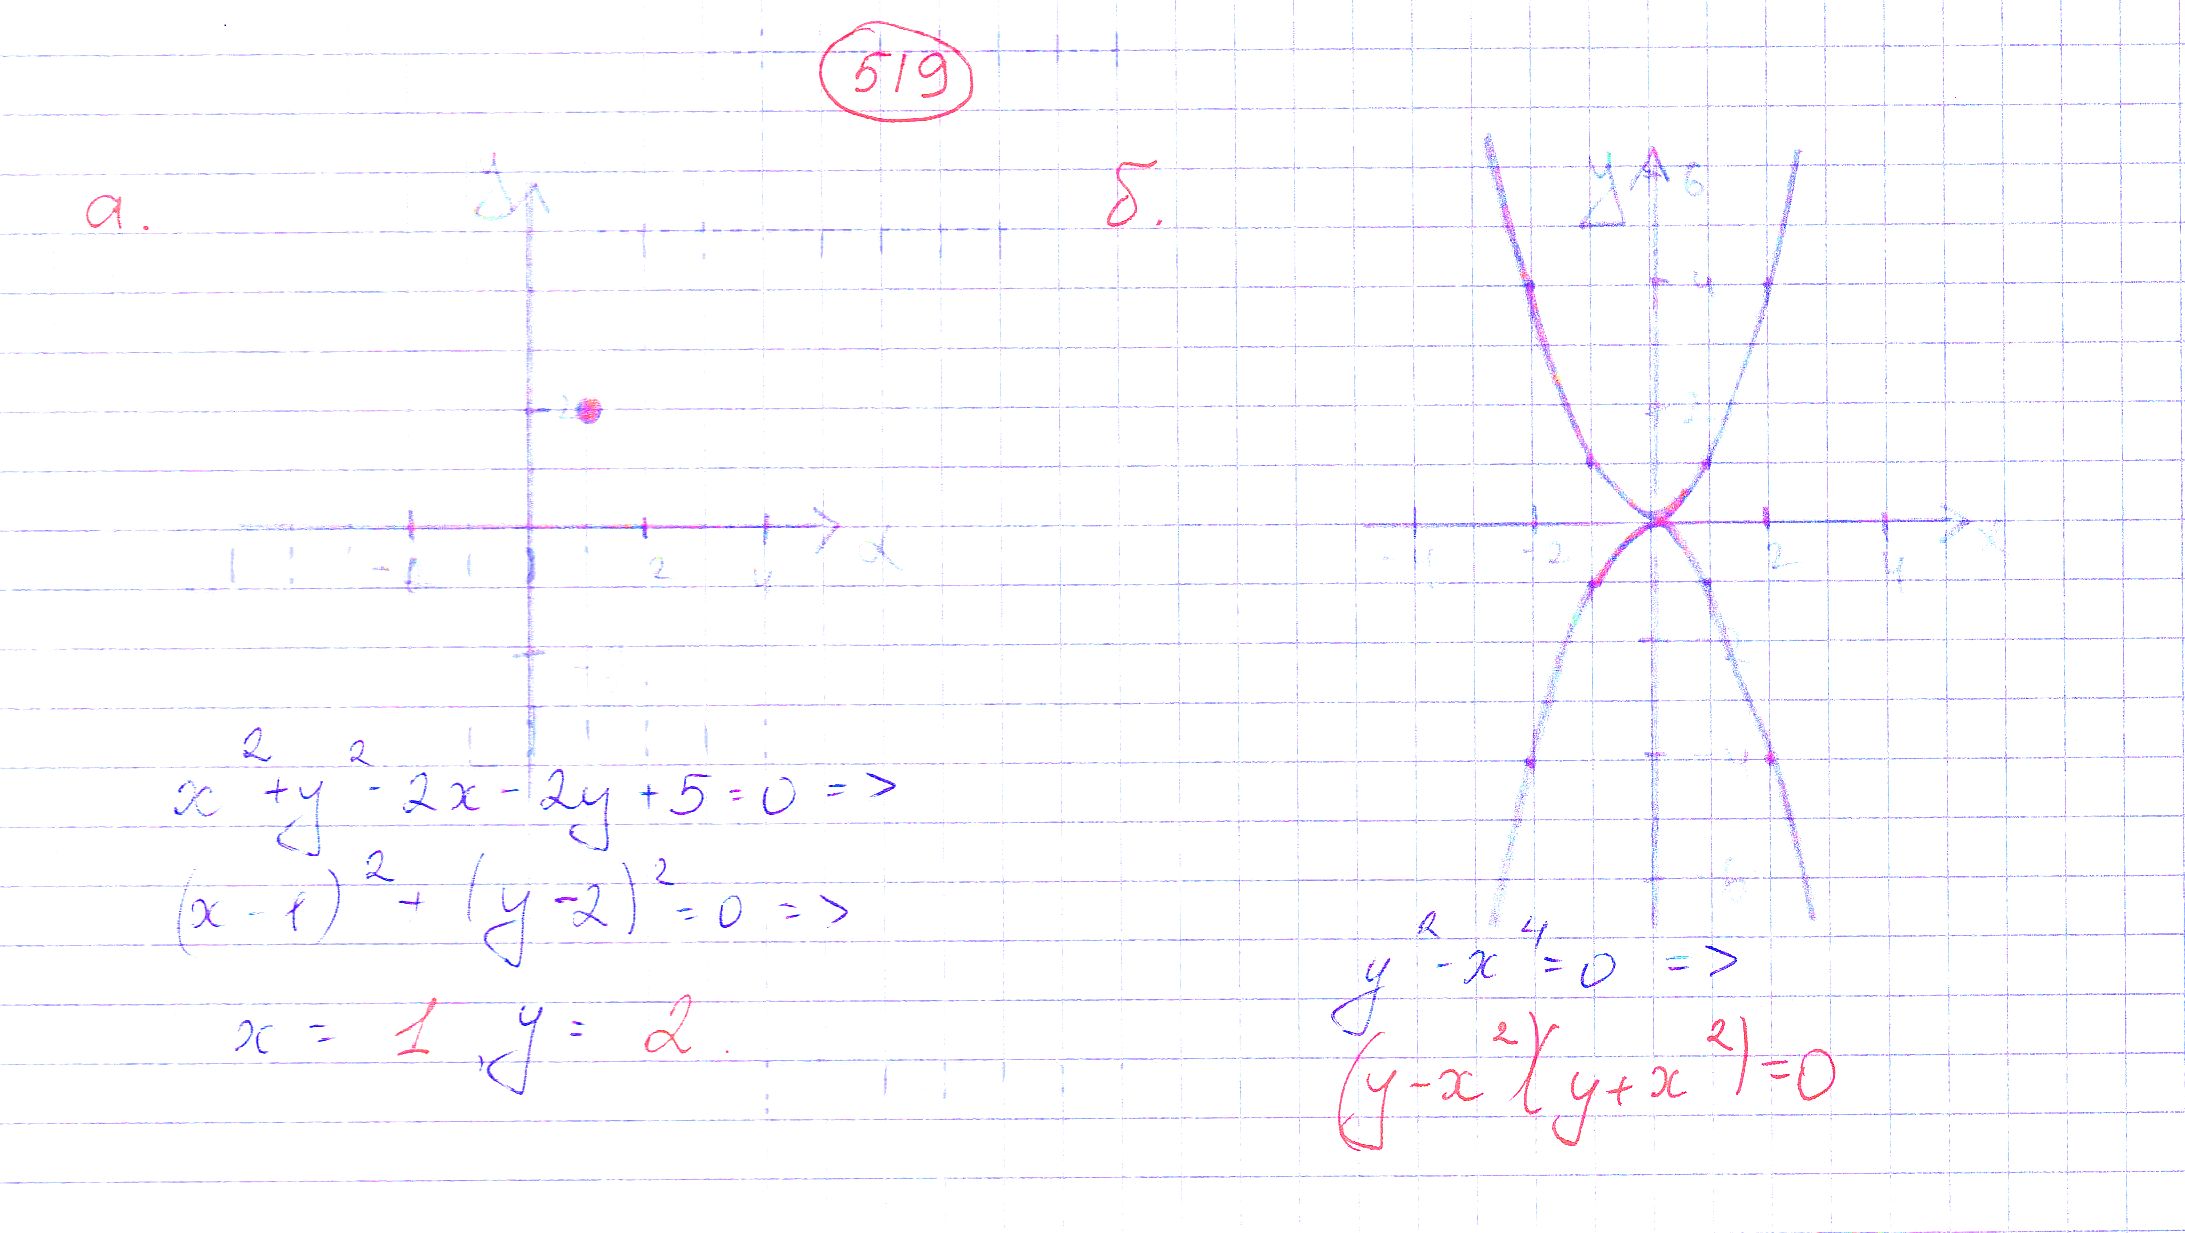 519
а.
y
2
2
4
x
x² + y² - 2x - 2y + 5 = 0 =>
(x - 1)² + (y - 2)² = 0 =>
x = 1, y = 2.
б.
y
6
4
-4
-2
2
4
x
y² - x⁴ = 0 =>
(y - x²)(y + x²) = 0